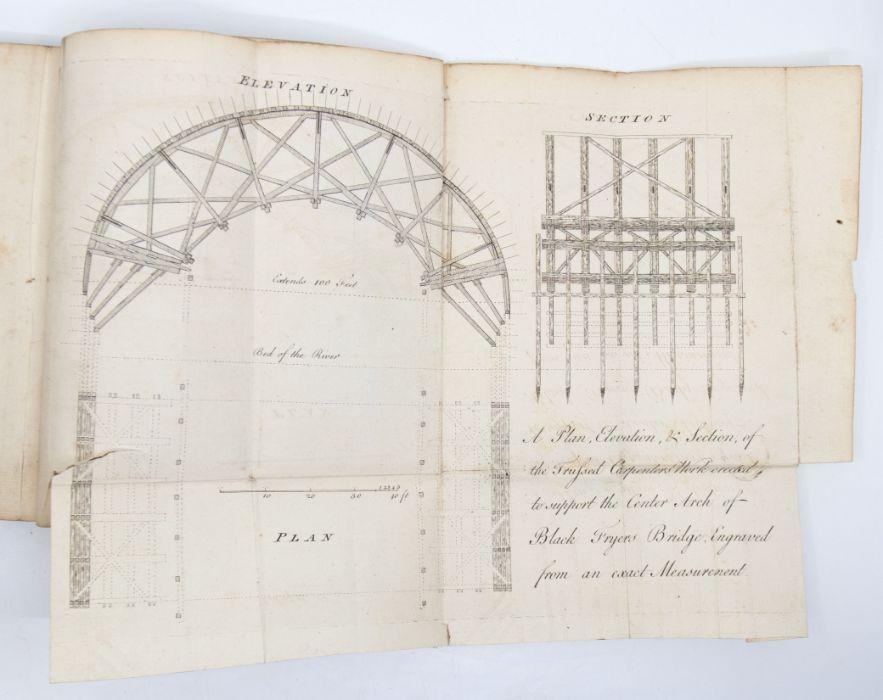 ELEVATION
SECTION
Extends 100 Feet
Bed of the River
10 20 30 40 ft
PLAN
A Plan, Elevation, & Section, of
the Trussed Carpenters Work erected
to support the Center Arch of
Black Fryers Bridge, Engraved
from an exact Measurement.